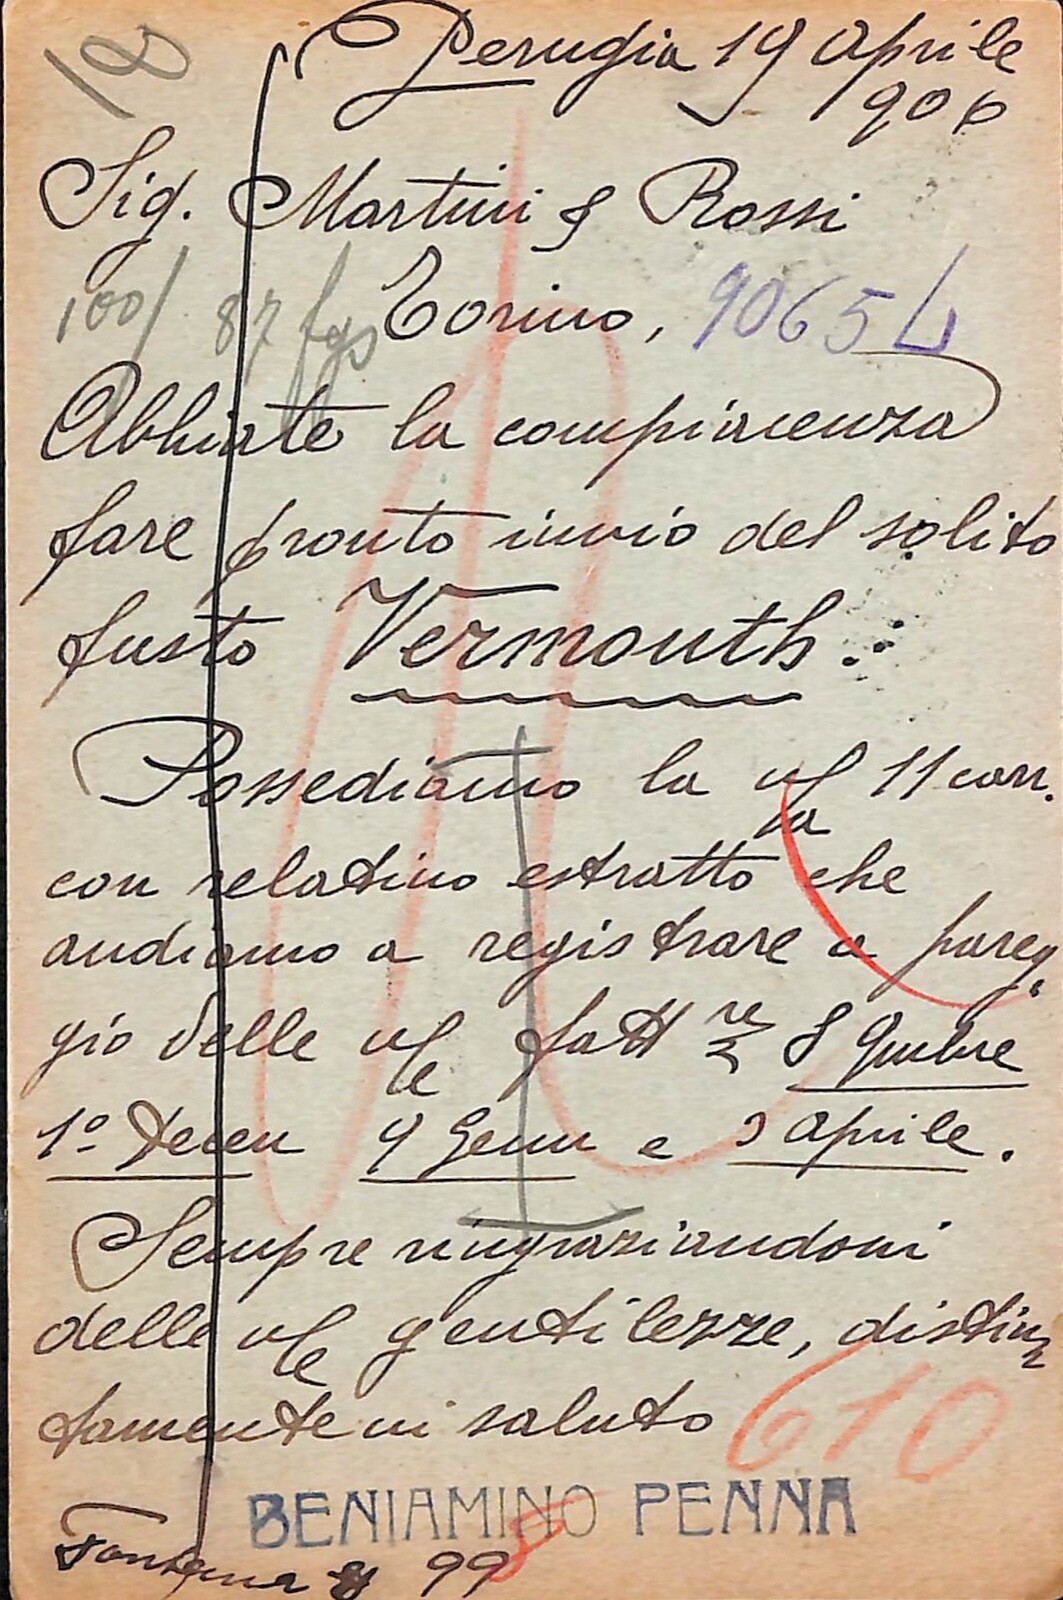 18
Perugia 19 Aprile
906
Sig. Martini & Rossi
100/ 87 fgs Torino, 9065 L
Abbiate la compiacenza
fare pronto invio del solito
fusto Vermouth.
Possediamo la v/a 11 corr.
con relativo estratto che
andiamo a registrare a pareg
gio delle v/e fatt re 8 9mbre
1º Decem 9 Genn e 3 Aprile.
Sempre ringraziandovi
delle v/e gentilezze, distin
tamente vi saluto
610
BENIAMINO PENNA
99